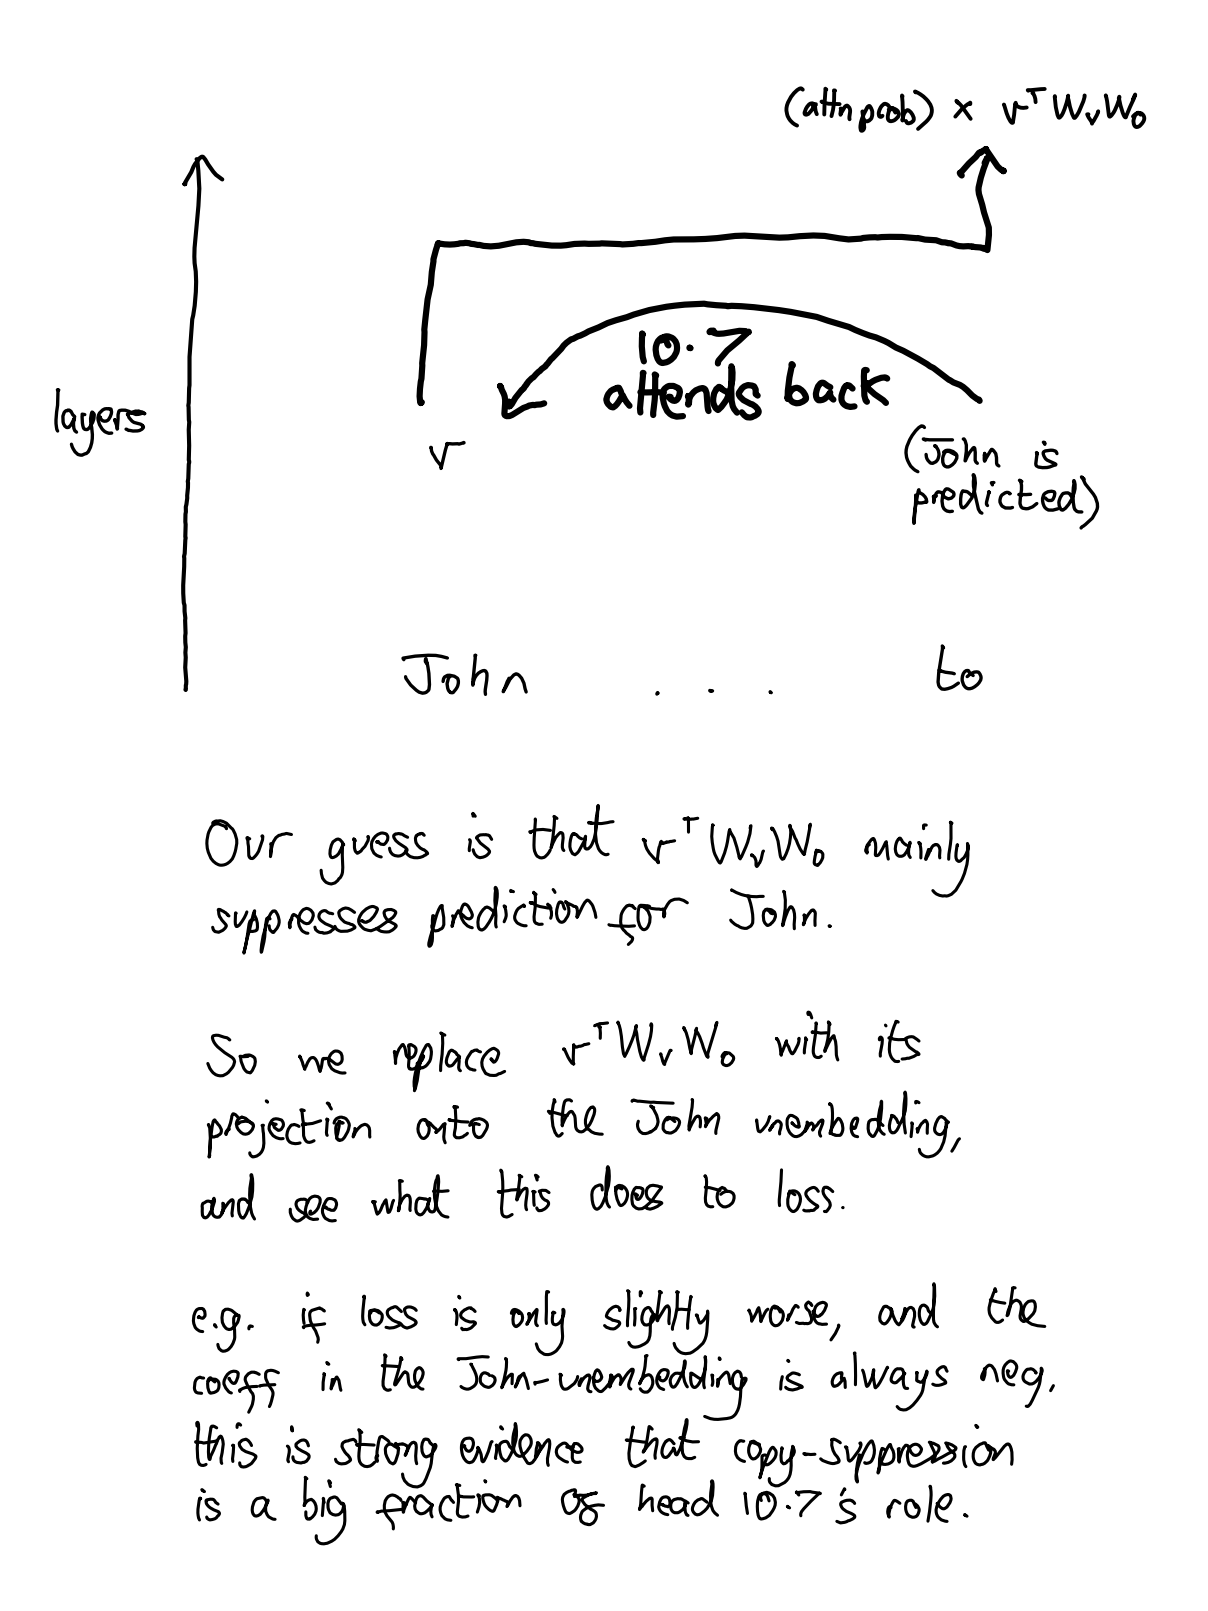 (attn prob) × vᵀWᵥW₀
10.7
attends back
layers
v
(John is
predicted)
John . . . to
Our guess is that vᵀWᵥW₀ mainly
suppresses prediction for John.
So we replace vᵀWᵥW₀ with its
projection onto the John unembedding,
and see what this does to loss.
e.g. if loss is only slightly worse, and the
coeff in the John-unembedding is always neg,
this is strong evidence that copy-suppression
is a big fraction of head 10.7's role.